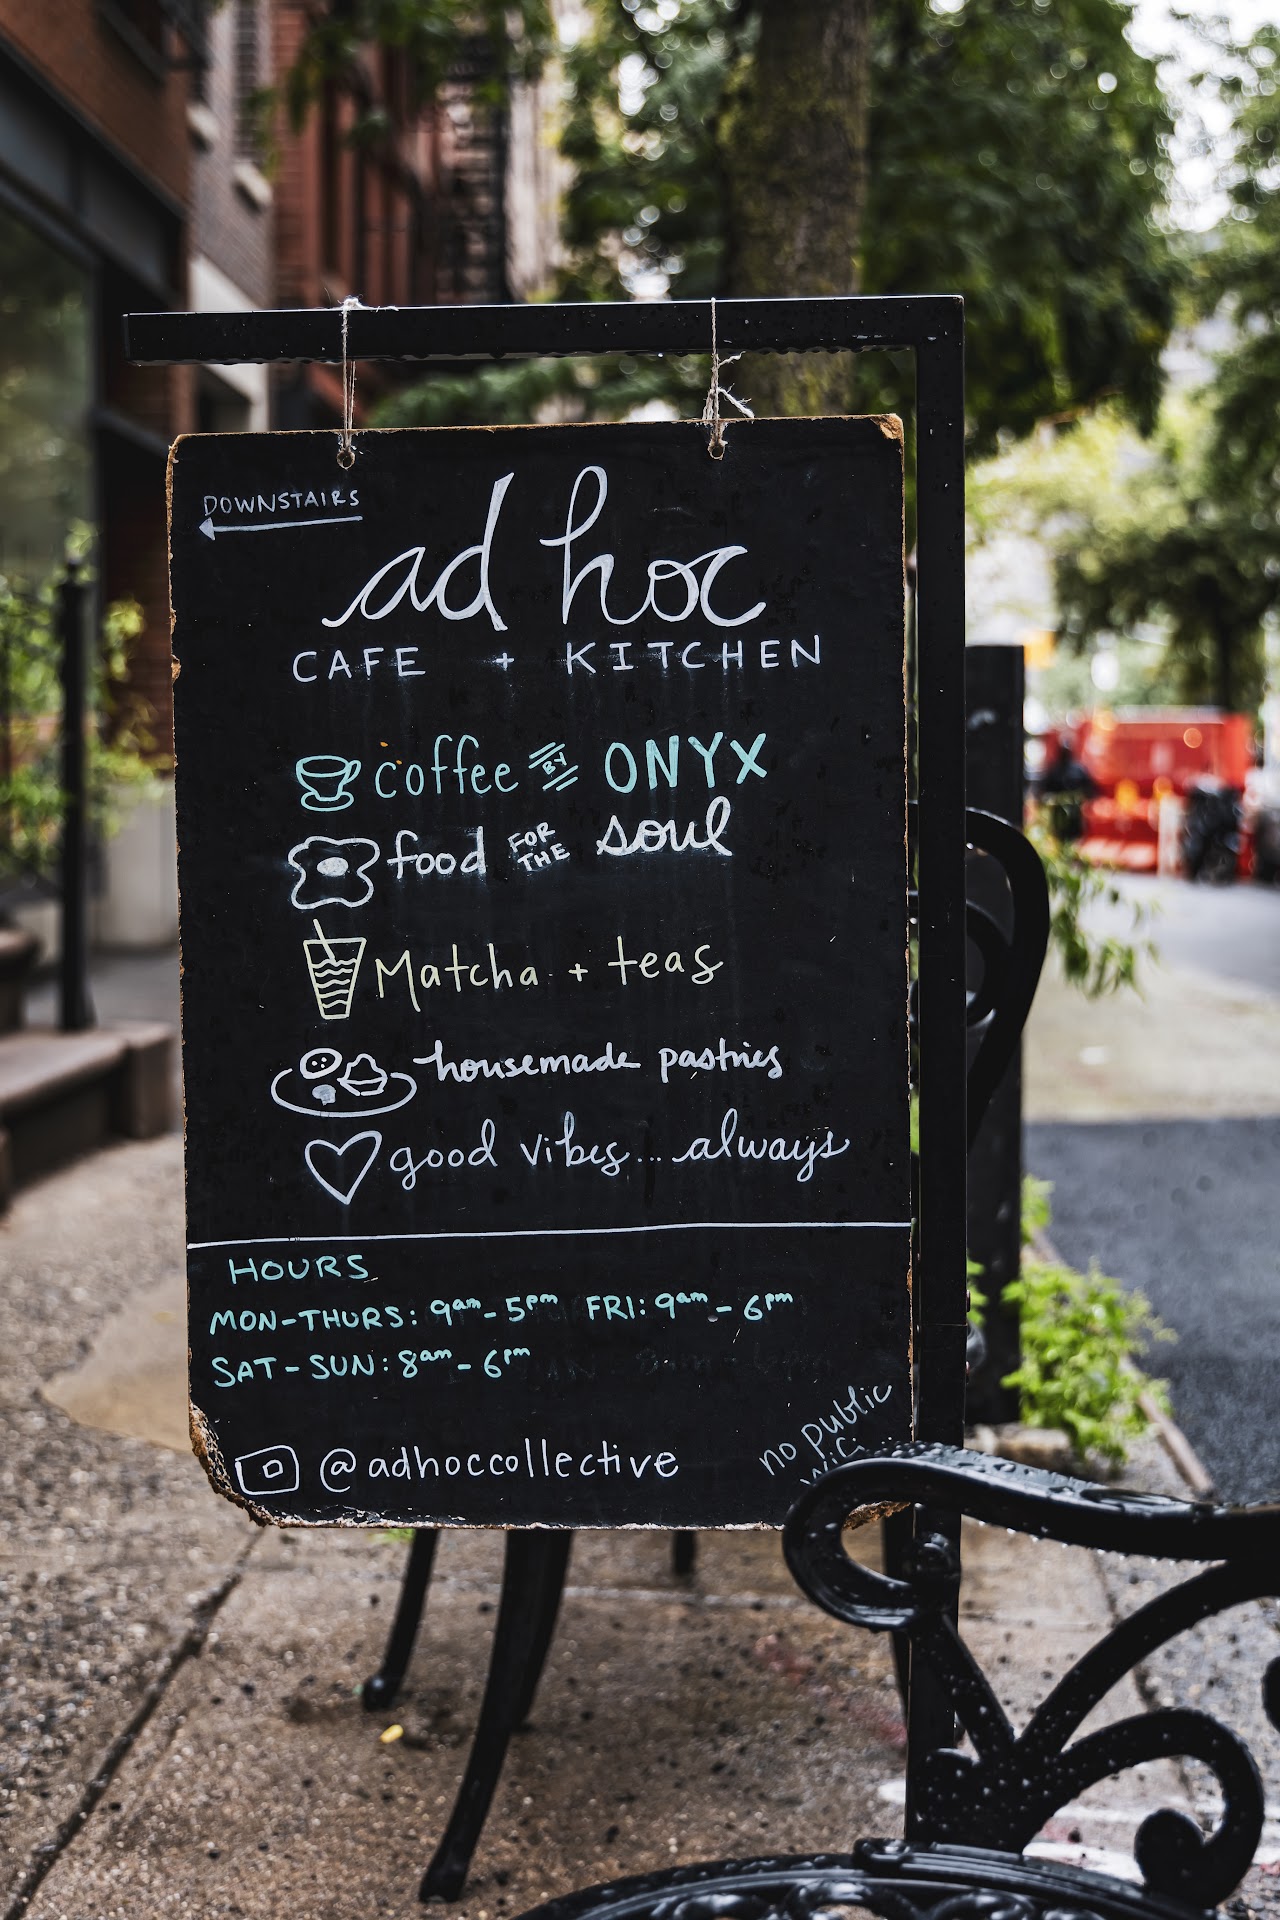 DOWNSTAIRS
ad hoc
CAFE + KITCHEN
coffee BY ONYX
food FOR THE soul
Matcha + teas
housemade pastries
good vibes... always
HOURS
MON-THURS: 9am - 5pm FRI: 9am - 6pm
SAT - SUN: 8am - 6pm
@adhoccollective
no public
wifi